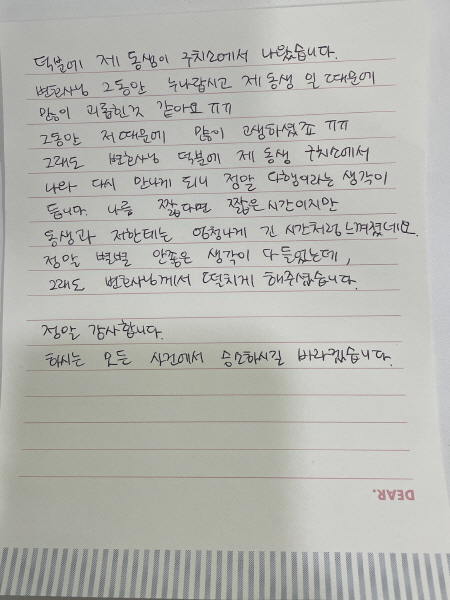 덕분에 제 동생이 구치소에서 나왔습니다.
변호사님 그동안 누나랍시고 제 동생 일 때문에
많이 괴롭힌것 같아요 ㅠㅠ
그동안 저 때문에 많이 고생하셨죠 ㅠㅠ
그래도 변호사님 덕분에 제 동생 구치소에서
나와 다시 만나게 되니 정말 다행이라는 생각이
듭니다. 나름 짧다면 짧은 시간이지만
동생과 저한테는 엄청나게 긴 시간처럼 느껴졌네요.
정말 별별 안좋은 생각이 다 들었는데,
그래도 변호사님께서 떨치게 해주셨습니다.
정말 감사합니다.
하시는 모든 사건에서 승소하시길 바라겠습니다.
DEAR.